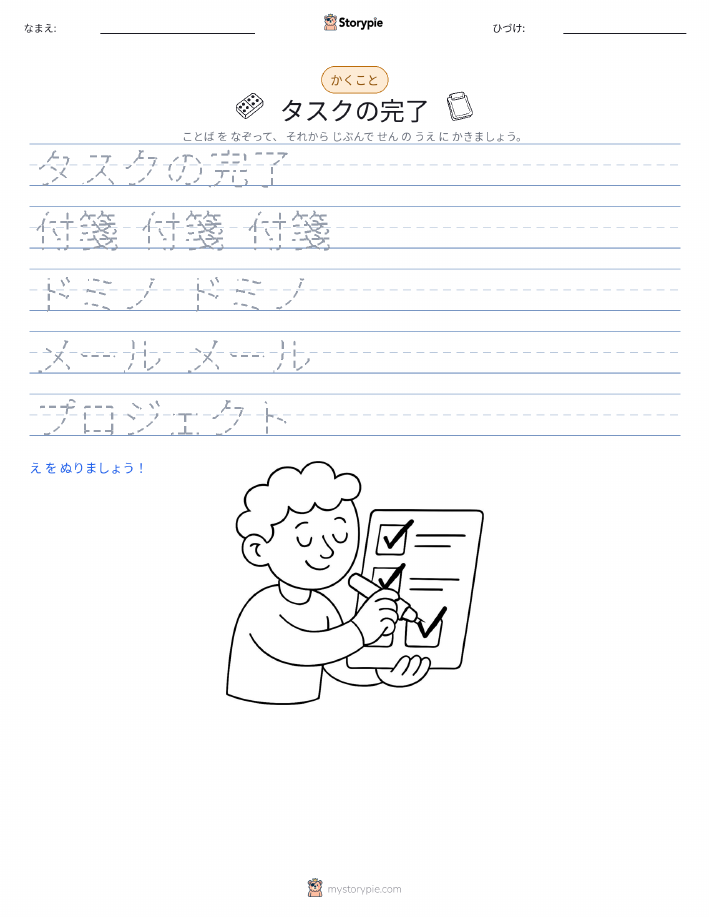 なまえ:
Storypie
ひづけ:
かくこと
タスクの完了
ことば を なぞって、 それから じぶんで せん の うえ に かきましょう。
タスクの完了
付箋 付箋 付箋
ドミノ ドミノ
メール メール
プロジェクト
え を ぬりましょう！
mystorypie.com